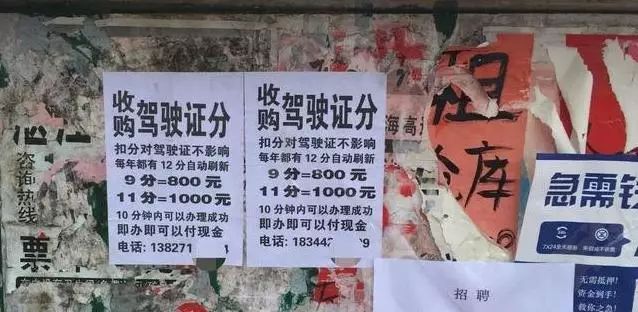 收购 驾驶证分
扣分对驾驶证不影响
每年都有12分自动刷新
9分=800元
11分=1000元
10分钟内可以办理成功
即办即可以付现金
电话: 138271
收购 驾驶证分
扣分对驾驶证不影响
每年都有12分自动刷新
9分=800元
11分=1000元
10分钟内可以办理成功
即办即可以付现金
电话: 18344
9
咨询热线
票
海高
租
库
急需钱
7X24全天服务
招聘
无需抵押!
资金到手!
救你之急!